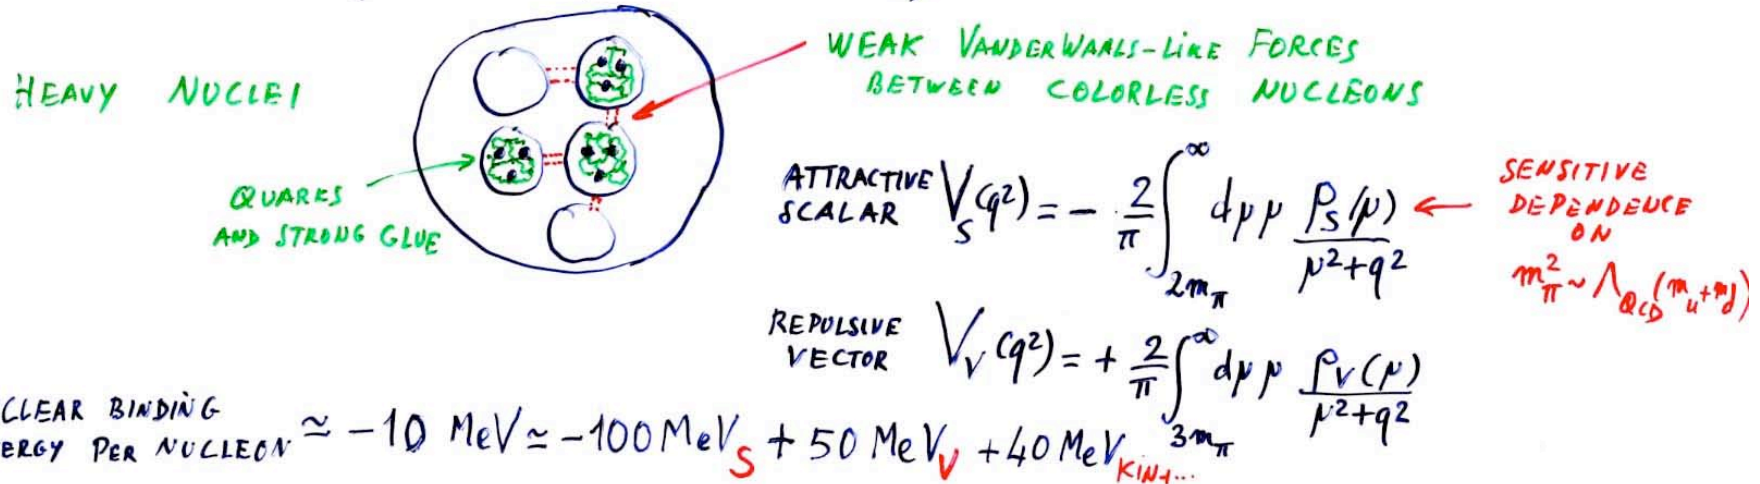 HEAVY NUCLEI
WEAK VANDERWAALS-LIKE FORCES
BETWEEN COLORLESS NUCLEONS
QUARKS
AND STRONG GLUE
ATTRACTIVE
SCALAR
V_S(q²) = - 2/π ∫_{2m_π}^∞ dμ μ ρ_S(μ)/(μ²+q²)
SENSITIVE
DEPENDENCE
ON
m_π² ~ Λ_QCD (m_u+m_d)
REPULSIVE
VECTOR
V_V(q²) = + 2/π ∫_{3m_π}^∞ dμ μ ρ_V(μ)/(μ²+q²)
CLEAR BINDING
ERGY PER NUCLEON ≃ -10 MeV ≃ -100 MeV_S + 50 MeV_V + 40 MeV_KIN+...